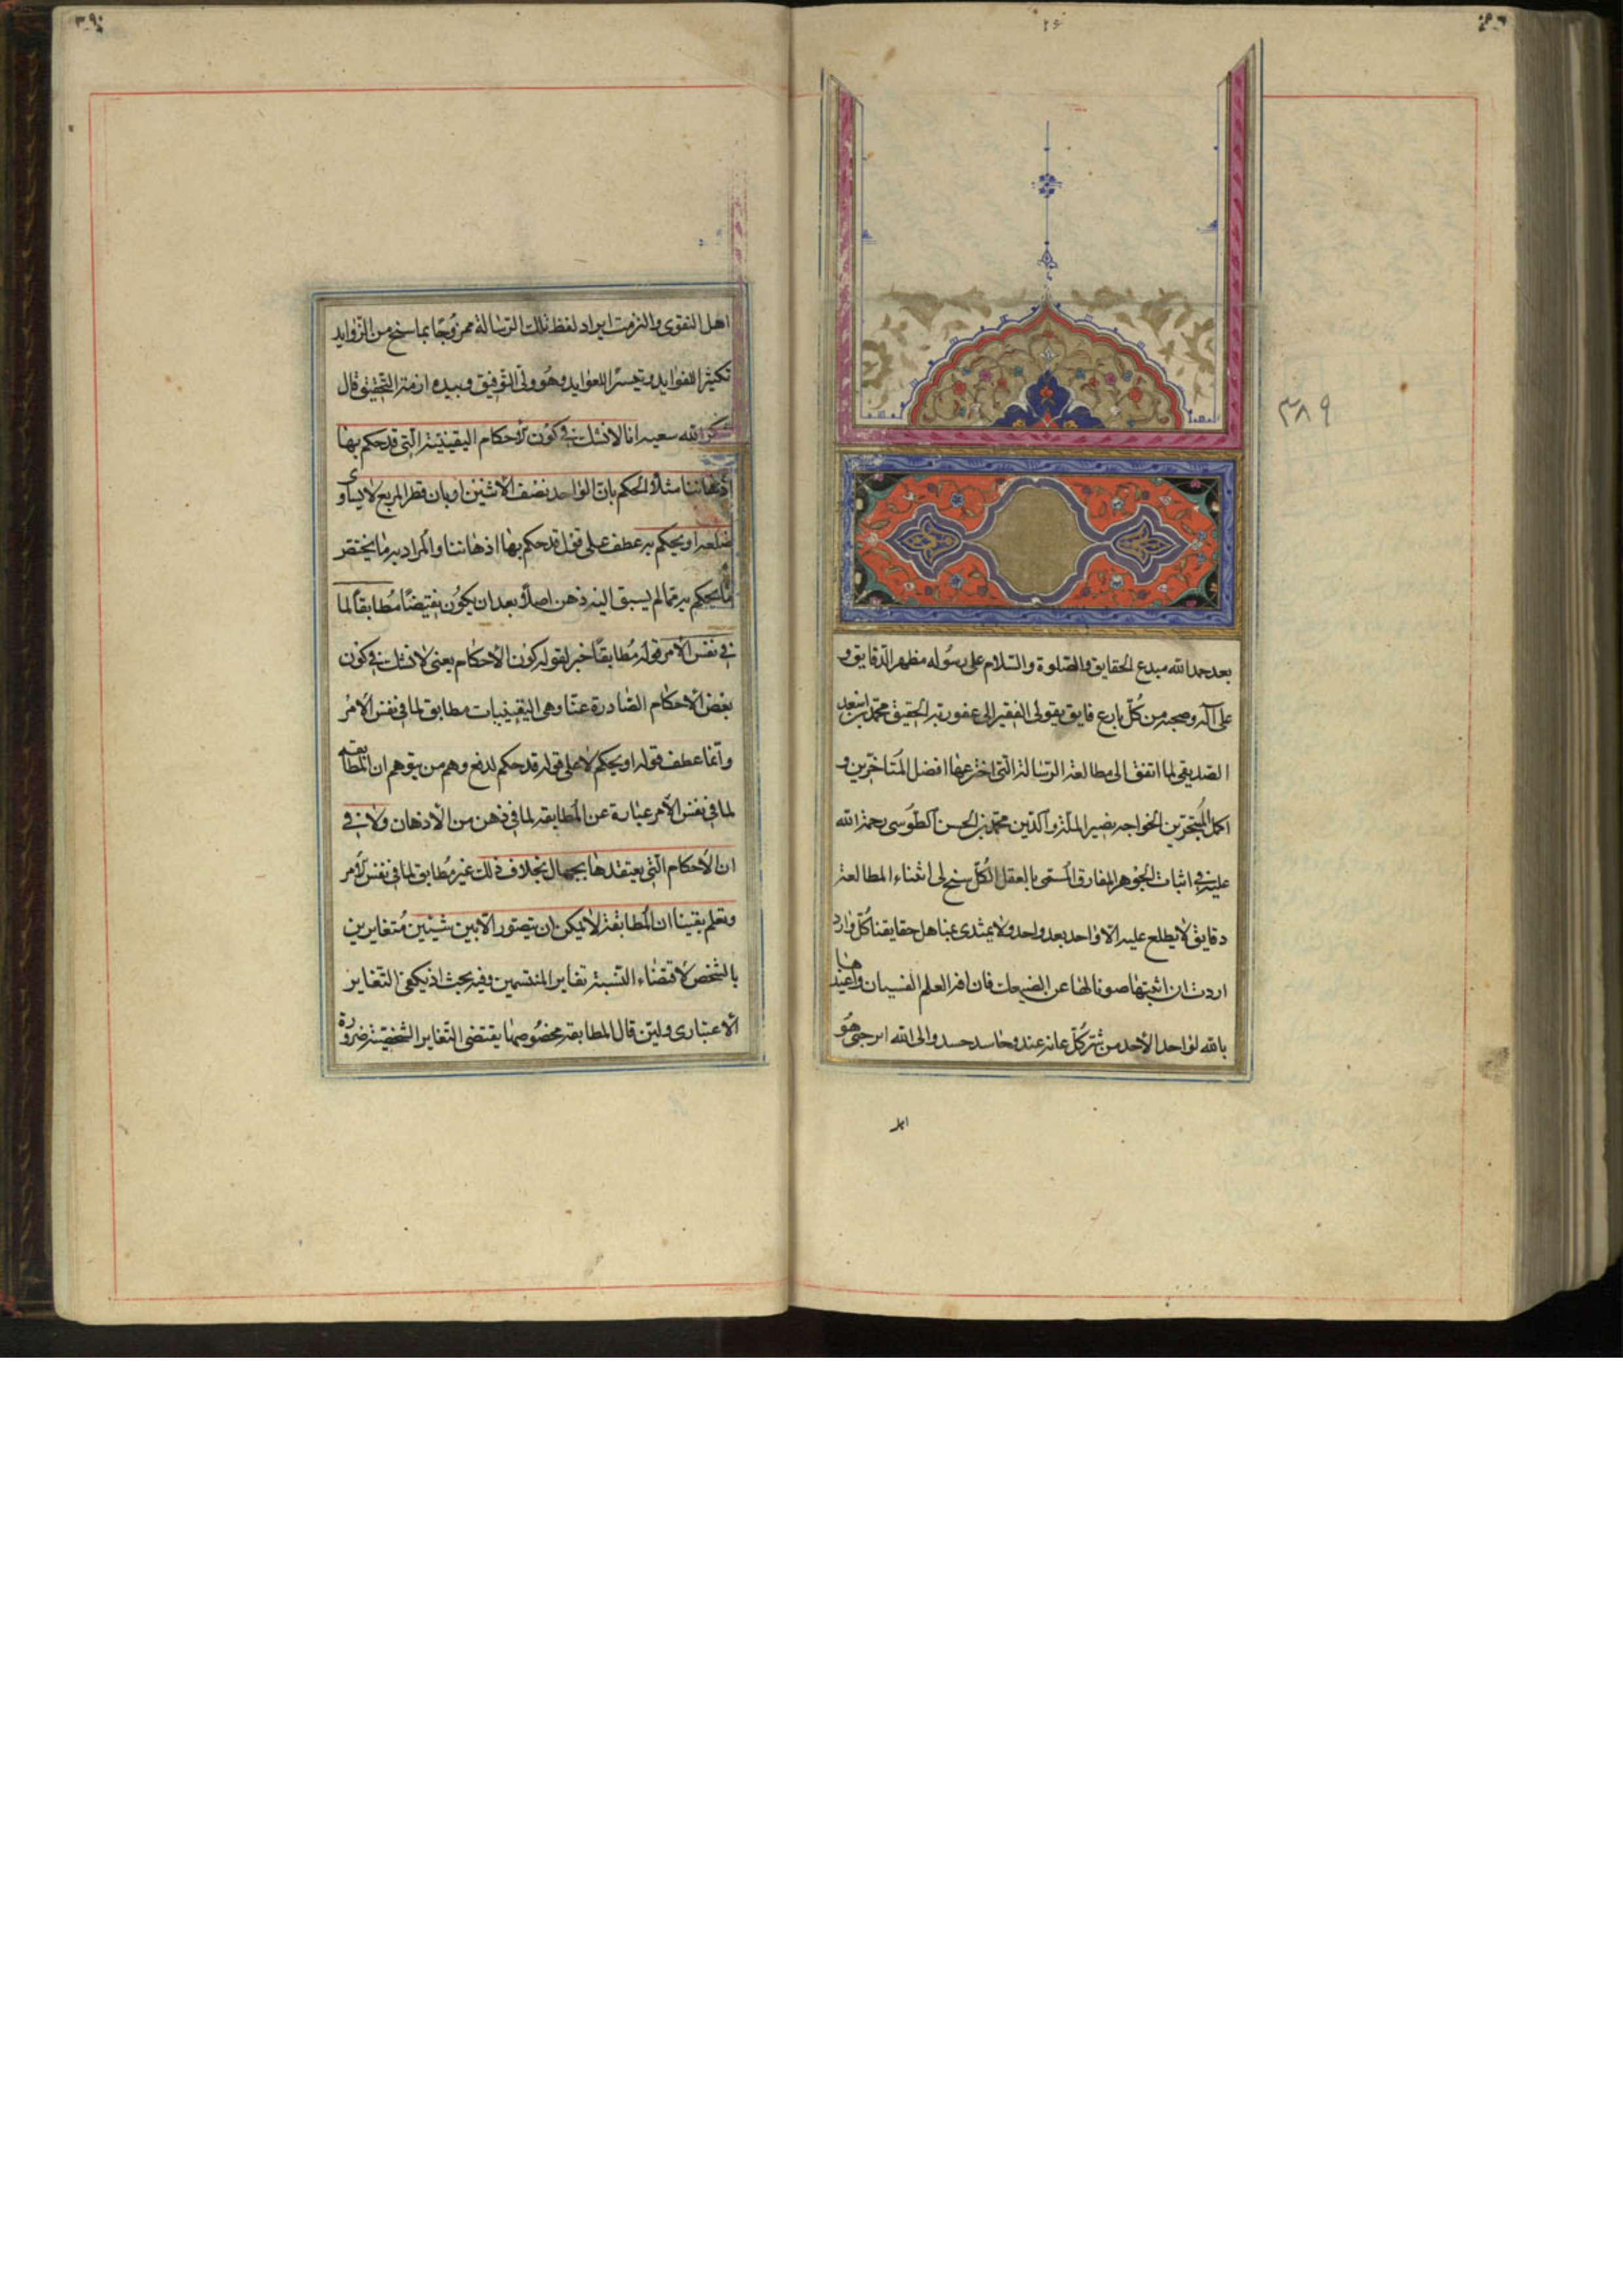 ٢۶
بعد حمد الله مبدع الحقايق والصلوة والسلام على رسوله مظهر الدقايق و
على آله وصحبه من كل بارع فايق يقول الفقير الى عفو ربه الحقيق محمد بن اسعد
الصديقى لما اتفق الى مطالعة الرسالة التى اخترعها افضل المتاخرين و
اكمل المتبحرين الخواجه نصير الملة والدين محمد بن الحسن الطوسى رحمة الله
عليه فى اثبات الجوهر المفارق المسمى بالعقل الكل سنح لى اثناء المطالعة
دقايق لا يطلع عليه الا واحد بعد واحد ولا يهتدى حقايقنا كل وارد
اردت ان اثبتها صونا لها عن فان افة العلم النسيان واعيذها
بالله الواحد الأحد من شر كل عاند عند وحاسد حسد والى الله ارجى هو
اهل
٣٨٩
٣٩٠
اهل التقوى والتزمت ايراد لفظ تلك الرسالة ممزوجا بما سنح من الزوايد
تكثيرا للفوايد وتيسيرا للعوايد وهو ولى التوفيق وبيده ازمة التحقيق قال
شكر الله سعيه انا لا نشك فى كون الأحكام اليقينية التى قد حكم بها
اذهاننا مثلا الحكم بان الواحد نصف الاثنين او بان قطر المربع لا يساوى
ضلعه او يحكم به عطف على قوله قد حكم بها اذهاننا والمراد به ما يختصر
ما يحكم به مما لم يسبق اليه ذهن اصلا بعد ان يكون يقينيا مطابقا لما
فى نفس الأمر قوله مطابقا خبر لقوله كون الأحكام يعنى لا نشك فى كون
بعض الأحكام الصادرة عنا وهى اليقينيات مطابق لما فى نفس الأمر
وانما عطف قوله او يحكم لا على قوله قد حكم لدفع وهم من يتوهم ان المطابقه
لما فى نفس الأمر عبارة عن المطابقه لما فى ذهن من الأذهان ولا فى
ان الأحكام التى يعتقدها بجهال بخلاف ذلك غير مطابق لما فى نفس الأمر
ونعلم يقينا ان المطابقة لا يمكن ان يتصور الا بين شيئين متغايرين
بالشخص لاقتضاء النسبة تغاير المنتسبين وفيه بحث اذ يكفى التغاير
الاعتبارى ولئن قال المطابقه بخصوصها يقتضى التغاير الشخصية ضرورة